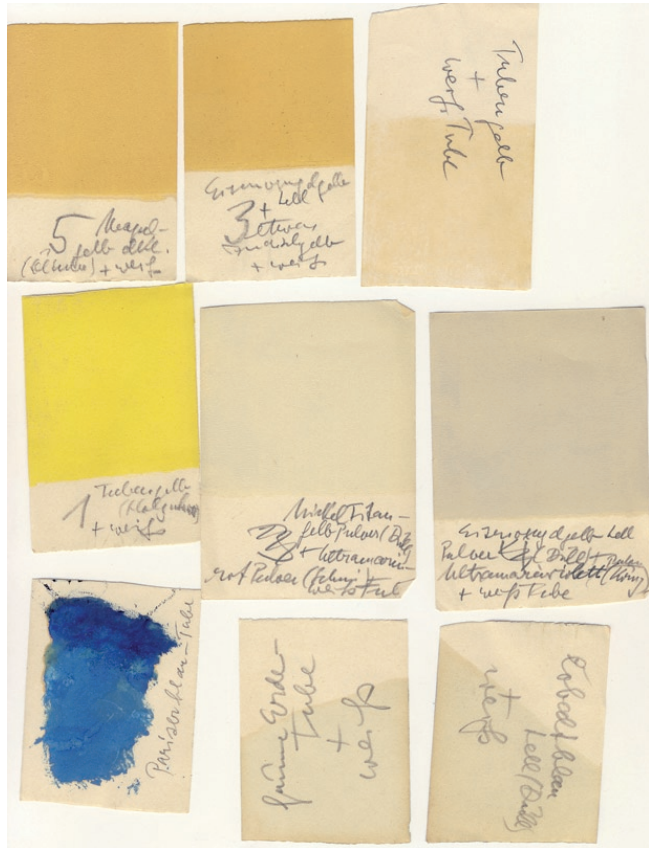 5 Neapel-
gelb dkl.
+ weiß
Eisenoxydgelb
+ hell
3 etwas
Indischgelb
+ weiß
Tubengelb
+
weiß Tube
1 Tubengelb
+ weiß
Nickel Titan-
gelb Pulver
+ Ultramarin-
rot Pulver
weiß Tub
Eisenoxydgelb hell
Pulver
Ultramarinviolett
+ weiß Tube
Pariserblau-Tube
grüne Erde-
Tube
+
weiß
Kobaltblau
hell
+
weiß